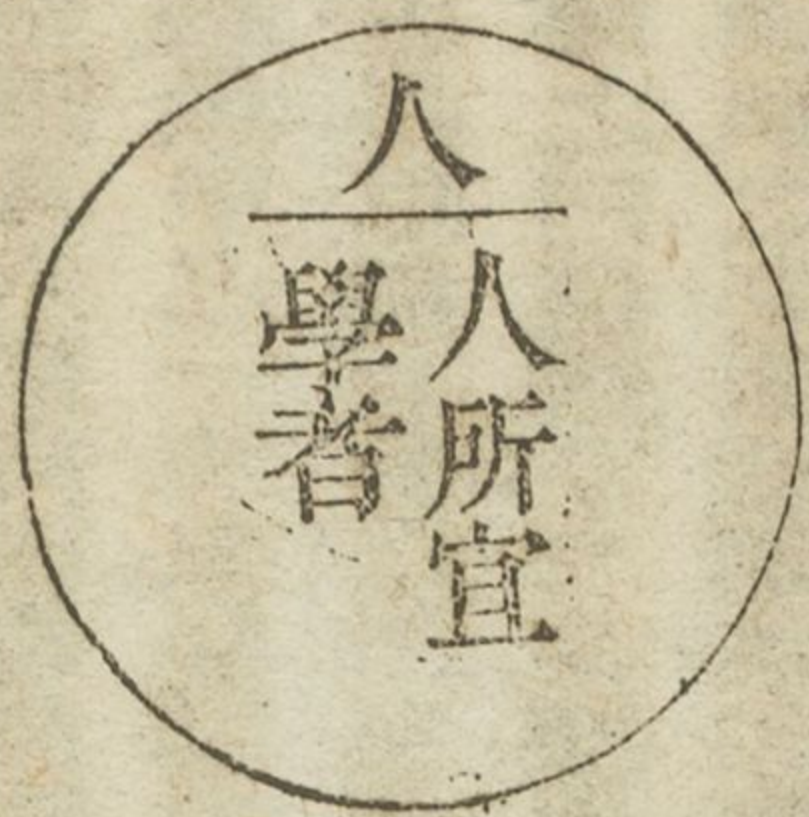 人
人所宜
學者